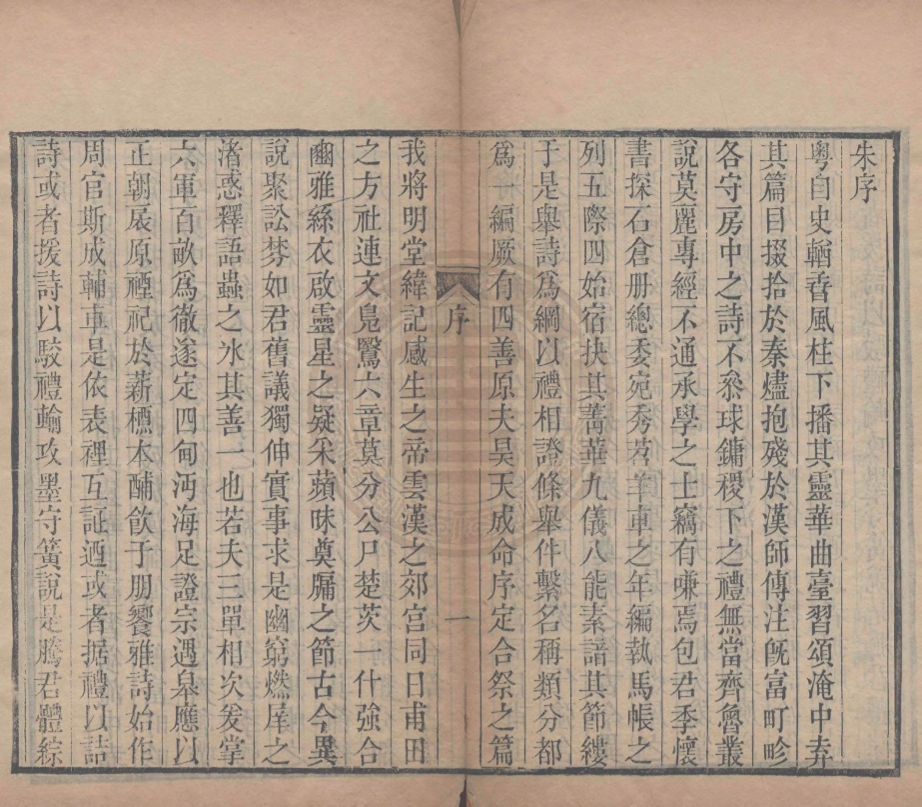 朱序
粵自史輶香風柱下播其靈華曲臺習頌淹中弆
其篇目掇拾於秦燼抱殘於漢師傳注旣富町畛
各守房中之詩不叅球鏞稷下之禮無當齊魯叢
說莫麗專經不通承學之士竊有嗛焉包君季懷
書探石倉册總委宛秀苕羊車之年編執馬帳之
列五際四始宿抉其菁華九儀八能素諳其節縷
于是舉詩爲綱以禮相證條舉件繫名稱類分都
爲一編厥有四善原夫昊天成命序定合祭之篇
序
一
我將明堂緯記感生之帝雲漢之郊宮同日甫田
之方社連文鳧鷖六章莫分公尸楚茨一什強合
豳雅絲衣啟靈星之疑采蘋昧奠牖之節古今異
說聚訟棼如君舊議獨伸實事求是幽窮燃犀之
渚惑釋語蟲之冰其善一也若夫三單相次爰掌
六軍百畝爲徹遂定四甸沔海足證宗遇皋應以
正朝扆原禋祀於薪槱本酺飮于朋饗雅詩始作
周官斯成輔車是依表裡互証迺或者据禮以詰
詩或者援詩以駁禮輸攻墨守簧說是騰君體綜